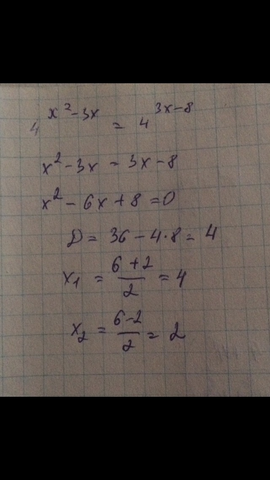 4^(x²-3x) = 4^(3x-8)
x²-3x = 3x-8
x²-6x+8=0
D = 36-4·8=4
x₁ = (6+2)/2 = 4
x₂ = (6-2)/2 = 2